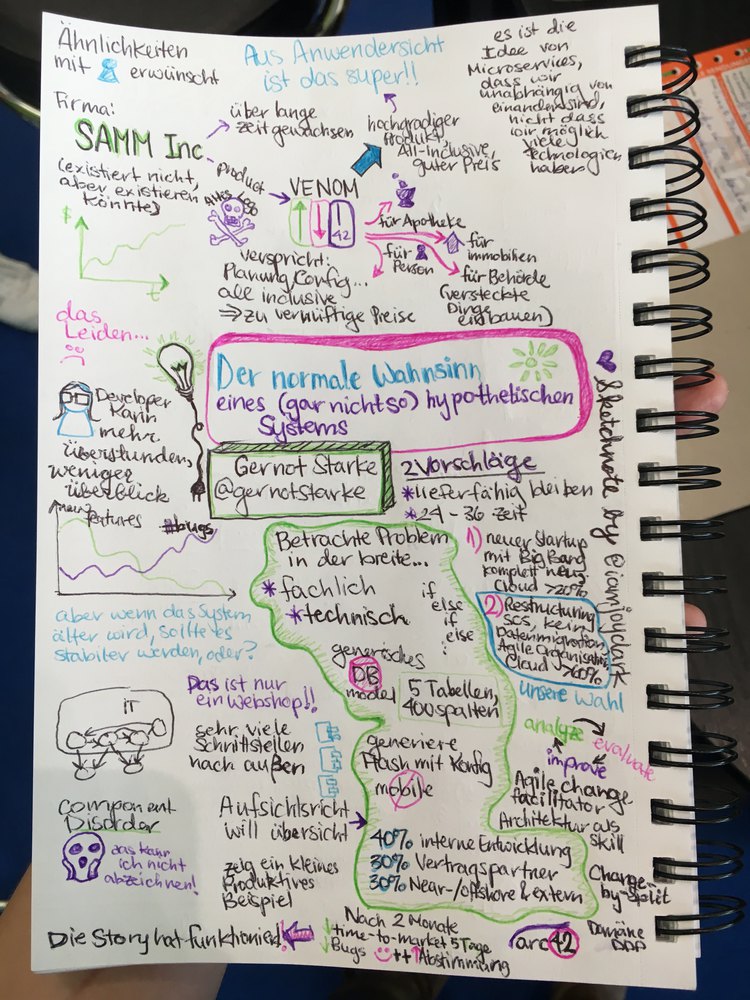 Ähnlichkeiten
mit erwünscht
Aus Anwendersicht
ist das super!!
es ist die
Idee von
Microservices,
dass wir
unabhängig von
einander sind,
nicht dass
wir möglich
viele
technologien
haben
Firma:
SAMM Inc
(existiert nicht,
aber existieren
könnte)
über lange
zeit gewachsen
product
Altes Logo
VENOM
42
hochgradiger
Produkt,
All-inclusive,
guter Preis
für Apotheke
für
immobilien
für
Person
für Behörde
(versteckte
Dinge
einbauen)
verspricht:
Planung, Config...
all inclusive
⇒ zu vernüftige Preise
$
t
das
Leiden...
Der normale Wahnsinn
eines (gar nicht so) hypothetischen
Systems
Gernot Starke
@gernotstarke
Sketchnote by @iamjoyclark
Developer
kann
mehr
überstunden,
weniger
überblick
new features
#bugs
aber wenn das System
älter wird, sollte es
stabiler werden, oder?
2 Vorschläge
* lieferfähig bleiben
* 24 - 36 zeit
1) neuer Startup
mit Big Bang
komplett neu.
Cloud >20%
2) Restructuring
SCS, kein
Datenmigration,
Agile Organisation
Cloud >60%
unsere Wahl
Betrachte Problem
in der breite...
* fachlich
* technisch
if
else
if
else
:
generisches
DB
model
5 Tabellen,
400 spalten
generiere
Flash mit Konfig
mobile
40% interne Entwicklung
30% Vertragspartner
30% Near-/offshore & extern
IT
Das ist nur
ein Webshop!!
sehr viele
Schnittstellen
nach außen
Component
Disorder
das kann
ich nicht
abzeichnen!
Aufsichtsricht
will übersicht
zeig ein kleines
Produktives
Beispiel
analyze
evaluate
improve
Agile change
facilitator
Architektur als
Skill
Change-
by-split
Domäne
DDD
arc42
Nach 2 Monate
time-to-market 5 Tage
Bugs ++ Abstimmung
Die Story hat funktioniert!